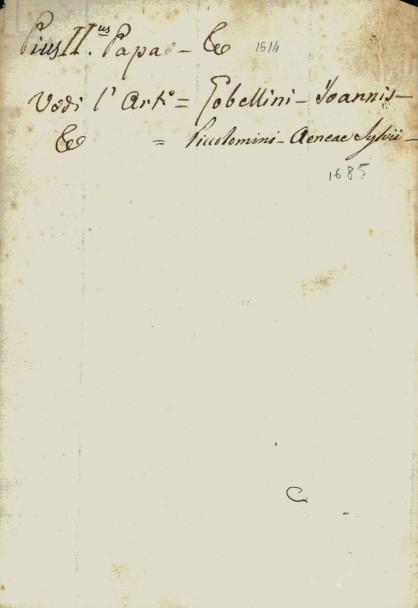 Pius II.us Papa - & 1614
Vedi l' Art.o = Gobellini - Joannis -
& = Piccolomini - Aeneae Sylvii -
1685
C